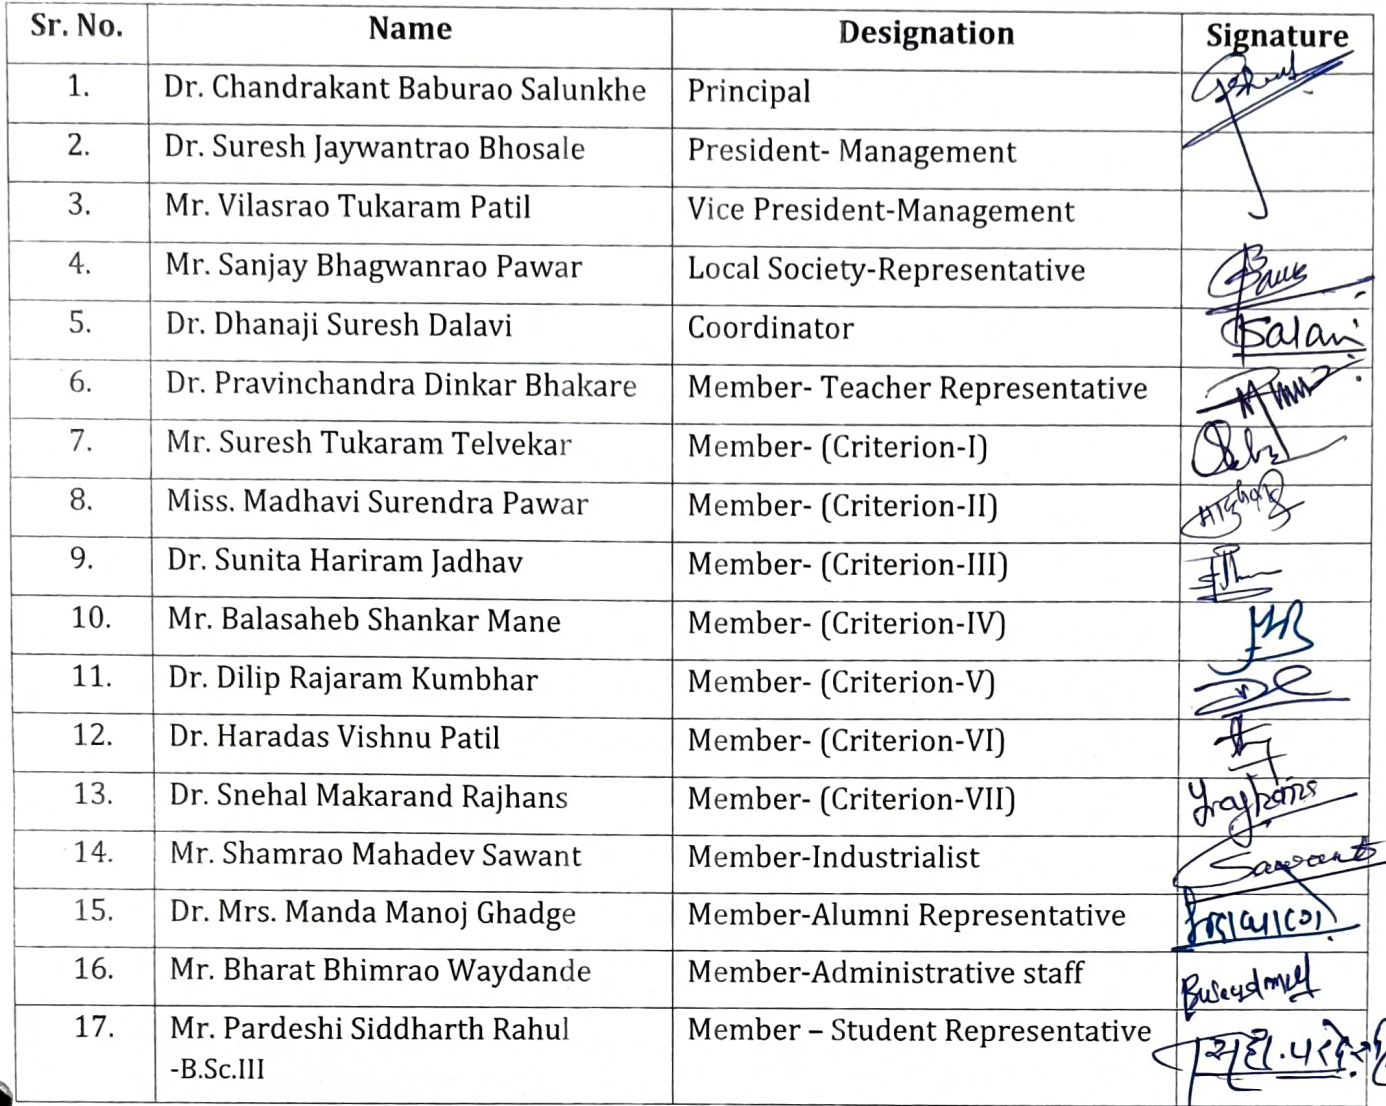 Sr. No. Name Designation Signature
1. Dr. Chandrakant Baburao Salunkhe Principal
2. Dr. Suresh Jaywantrao Bhosale President- Management
3. Mr. Vilasrao Tukaram Patil Vice President-Management
4. Mr. Sanjay Bhagwanrao Pawar Local Society-Representative
5. Dr. Dhanaji Suresh Dalavi Coordinator
6. Dr. Pravinchandra Dinkar Bhakare Member- Teacher Representative
7. Mr. Suresh Tukaram Telvekar Member- (Criterion-I)
8. Miss. Madhavi Surendra Pawar Member- (Criterion-II)
9. Dr. Sunita Hariram Jadhav Member- (Criterion-III)
10. Mr. Balasaheb Shankar Mane Member- (Criterion-IV)
11. Dr. Dilip Rajaram Kumbhar Member- (Criterion-V)
12. Dr. Haradas Vishnu Patil Member- (Criterion-VI)
13. Dr. Snehal Makarand Rajhans Member- (Criterion-VII)
14. Mr. Shamrao Mahadev Sawant Member-Industrialist
15. Dr. Mrs. Manda Manoj Ghadge Member-Alumni Representative
16. Mr. Bharat Bhimrao Waydande Member-Administrative staff
17. Mr. Pardeshi Siddharth Rahul Member – Student Representative
-B.Sc.III